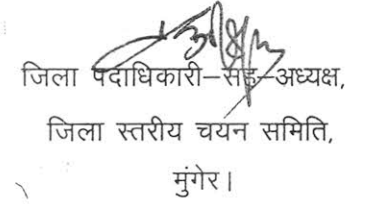 जिला पदाधिकारी–सह–अध्यक्ष,
जिला स्तरीय चयन समिति,
मुंगेर।